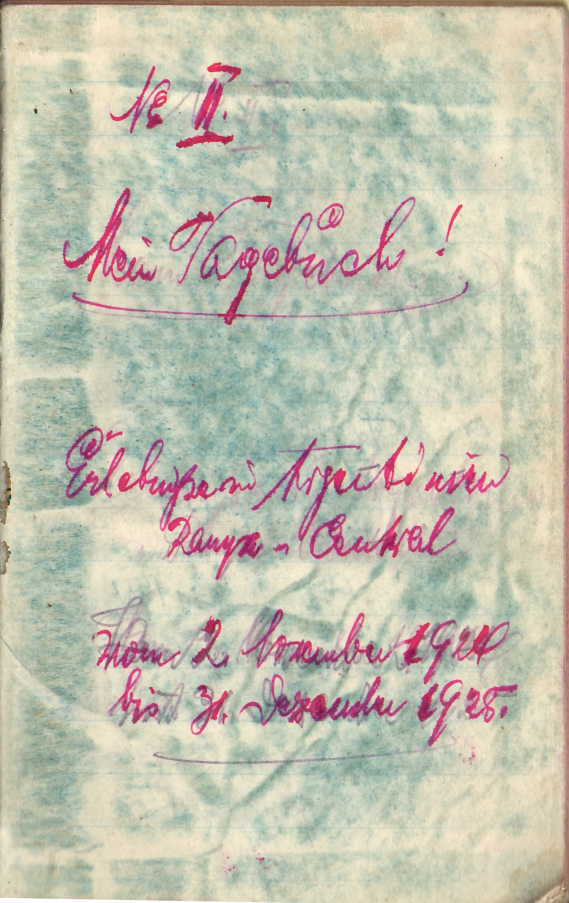 No II.
Mein Tagebuch!
Erlebniße in Argentinien
Pampa-Central
Vom 2. November 1924
bis 31. Dezember 1925.